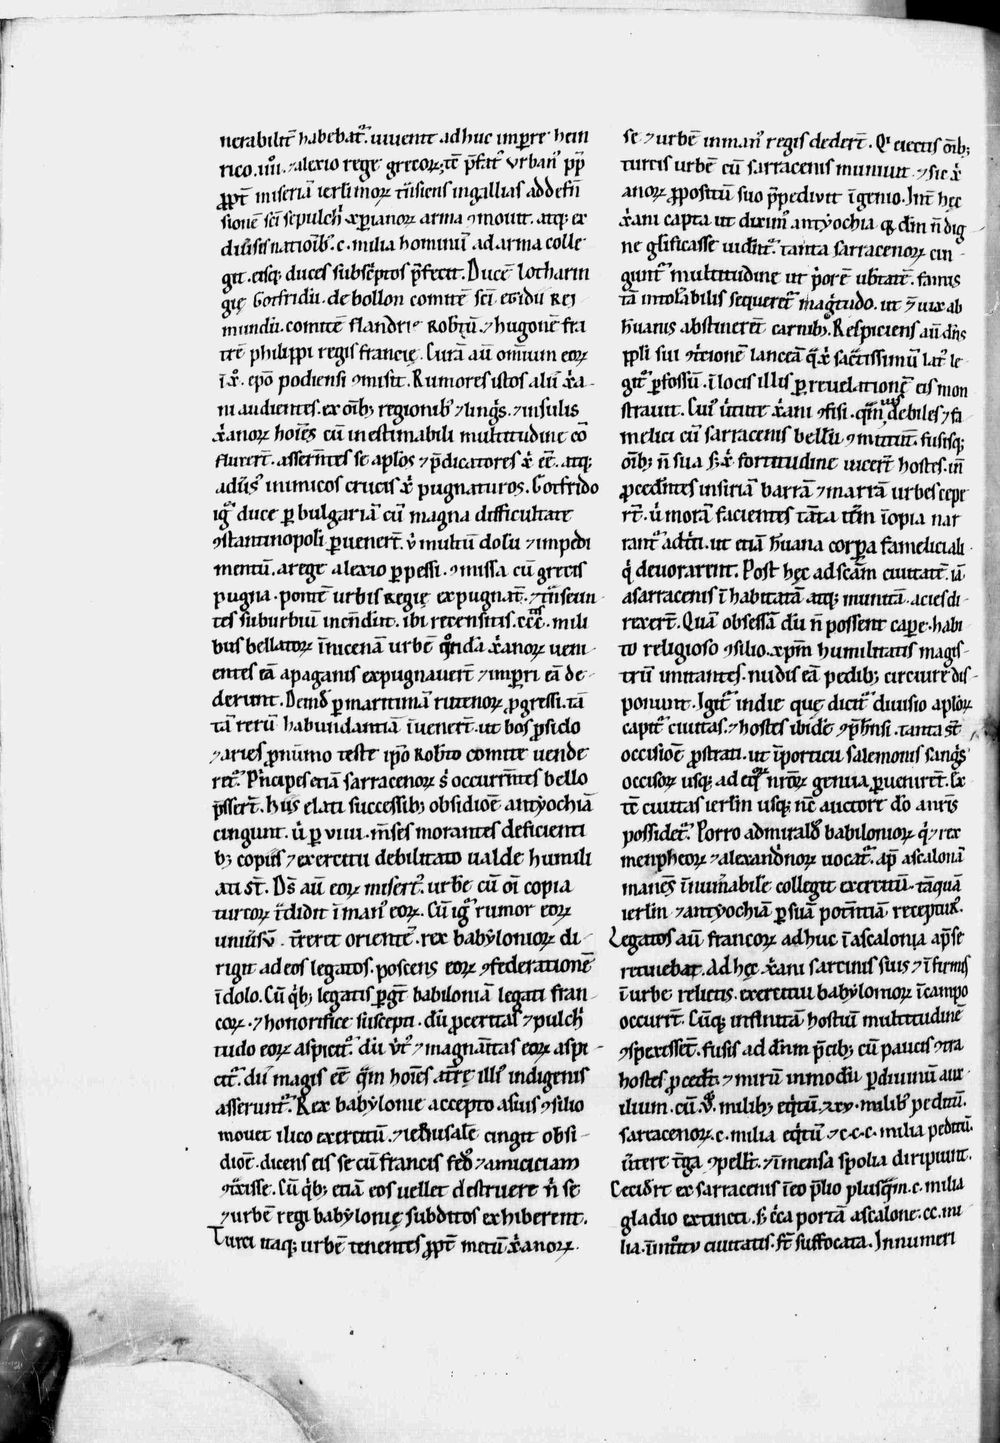 nerabilit̄ habebat᷑. viuente adhuc impr̄e hein
rico .iiii. ⁊ alexio rege grecoꝝ; iē p̄fat᷒ vrban᷒ pp̄
ꝓpt̄ miseriā ierl̄imoꝝ t᷑nsiens in gallias ad defn̄
sionē sc̄i sepulch̄ xp̄ianoꝝ arma ꝯmouit. atq; ex
diu᷒sis nationib; .c. milia hominū ad arma colle
git. eisq; duces subsc᷑ptos p̄fecit. Ducē lotharin
gię Gotfridū. de bollon comitē sc̄i egidii Rei
mundū. comitē flandrię Rob̄tū. ⁊ hugonē fra
trē philippi regis francię. Curā aū omnium eoꝝ
ī xp̄o. ep̄o podiensi ꝯmisit. Rumores istos alii xp̄a-
ni audientes. ex oīb; regionib; ⁊ lingis. ⁊ insulis
xp̄anoꝝ hoīes cū inestimabili multitudine cō
fluxert̄. asserētes se apl̄os ⁊ p̄dicatores xp̄i eē. atq;
adūs inimicos crucis xp̄i pugnaturos. Gotfrido
igr̄ duce ꝑ bulgariā cū magna difficultate
ꝯstantinopoli ꝑuenert̄. ū multū doli ⁊ impedi
mentū. a rege alexio ꝑpessi. ꝯmissa cū grecis
pugna. pontē urbis Regię expugnāt. ⁊ t᷑nseun-
tes suburbiū incendūt. ibi recensitis .ccc. mili
bus bellatoꝝ ī nicenā urbē quōdā xp̄anoꝝ ueni
entes eā a paganis expugnauert̄ ⁊ imp̄ri eā de-
derunt. Deinde ꝑ maritimā rutenoꝝ ꝓgressi. tā
tā rerū habundantiā īuenert̄. ut bos ꝓ sicło
⁊ aries ꝓ nūmo teste ip̄o Rob̄to comite uende
ret᷑. P̄ncipes etiā sarracenoꝝ s̄ occurrētes bello
p̄ssert̄. Hiis elati successib; obsidionē antyochiā
cingunt. ū ꝑ viiii. m̄ses morantes deficienti
b; copiis ⁊ exercitu debilitato ualde humili
ati st̄. Ds̄ aū eoꝝ misert᷒. urbē cū oī copia
turcoꝝ t᷑didit ī man᷒ eoꝝ. Cū igr̄ rumor eoꝝ
uniūsū. t̄reret orientē. rex babyloniorꝝ di-
rigit ad eos legatos. poscens eoꝝ ꝯfederationē
ī dolo. Cū qb; legatis ꝑgt̄ babiloniā legati fran-
coꝝ. ⁊ honorifice suscepti. dū ꝓceritas ⁊ pulch̄
tudo eoꝝ aspicit᷑. dū vt᷒ ⁊ magnāītas eoꝝ aspi-
cit᷑. dū magis eē q̄m hoīes at̄rę illi᷒ indigenis
asserunt᷑. Rex babylonie accepto asius ꝯsilio
mouet ilico exercitū. ⁊ ierl̄usalē cingit obsi-
dionē. dicens eis se cū francis fed᷒ ⁊ amiciciam
ꝯt᷑xisse. Cū qb; etiā eos uellet destruere n̄ se
⁊ urbē regi babylonię subditos exhiberent.
Turci itaq; urbē tenentes ꝓpt̄ metū xp̄anoꝝ.
se ⁊ urbē in man᷒ regis dedert̄. Qⁱ eiectis oīb;
turcis urbē cū sarracenis muniuit. ⁊ sic xp̄i
anoꝝ ꝓpositū suo p̄pediuit īgenio. Int̄ hęc
xp̄ani capta ut dixim᷒ antyochia q̄ dm̄ n̄ dig-
ne glificasse uidēt᷑. tanta sarracenoꝝ cin-
gunt᷑ multitudine ut p̄orē ubertatē. famis
tā intol̄abilis sequeret᷑ mag̃tudo. ut ⁊ uix ab
hūanis abstinerēt carnib;. Respiciens aū dn̄s
ppl̄i sui ꝯt᷑cionē lanceā q̄ xp̄i sac᷑tissimū lat᷒ le-
git᷑ perfossū. ī locis illis ꝑ reuelationē eis mon
strauit. Cui᷒ ūtute xp̄ani ꝯfisi. q̄m̄uis debiles ⁊ fa
melici cū sarracenis bellū ꝯmittūt. fusisq;
oīb; n̄ sua s̄ xp̄i fortitudine uicert̄ hostes. in̄
ꝓcedētes in siriā barrā ⁊ marrā urbes cepe
rt̄. ū morā facientes tāta tn̄ īopia nar
rant᷑ adt̄ti. ut etiā hūana corpora fame diciali
q̄ deuorarent. Post hęc ad sc̄am ciuitatē. iā
a sarracenis ī habitatā atq; munitā. acies di-
rexert̄. Quā obsessā dū n̄ possent cape. habi-
to religioso ꝯsilio. xp̄m humilitatis magis-
trū imitantes. nudis eā pedib; circuire dis-
ponunt. Igit᷑ in die quę dicit᷑ diuisio apl̄oꝝ
capit᷑ ciuitas. ⁊ hostes ibidē ꝯp̄hensi. tanta st̄
occisionē ꝓstrati. ut ī porticu salemonis sangis
occisoꝝ usq; ad eq̄oꝝ nr̄oꝝ genua ꝑueniret̄. Ex
tē ciuitas ierl̄m usq; nc̄ auctore do᷒ a nris
possidet᷑. Porro admirald᷒ babilonioꝝ q ⁊ rex
menpheoꝝ ⁊ alexandrinoꝝ uocat᷑. ap̄ ascalonā
manēs īnum̄abilē collegit exercitū. tāquā
ierl̄m ⁊ antyochiā ꝑ suā potn̄tiā recepturus.
Legatos aū francoꝝ adhuc ī ascalonia ap̄ se
retinebat. Ad hęc xp̄ani sarcinis suis ⁊ īfirmis
ī urbe relictis. exercitui babylonioꝝ ī campo
occurrt̄. Cūq; infinitā hostiū multitudinē
ꝯspexissēt. fusis ad dn̄m p̄cib; cū paucis ꝯtra
hostes ꝓcedt̄. ⁊ mirū in modū ꝑ diuinū aux-
ilium. cū .v. milib; eq̄tū. ⁊ xv. milib; peditū.
sarracenoꝝ .c. milia eq̄tū ⁊ c.c.c. milia peditū.
ūtere t᷑ga ꝯpellt̄. ⁊ īmensa spolia diripiunt.
Cecidert̄ ex sarracenis ī eo p̄lio plusq̄m .c. milia
gladio extincti. S; c᷑ca portā ascalone .cc. mi
lia. ū īt᷑oitu ciuitatis. st̄ suffocata. Innumeri